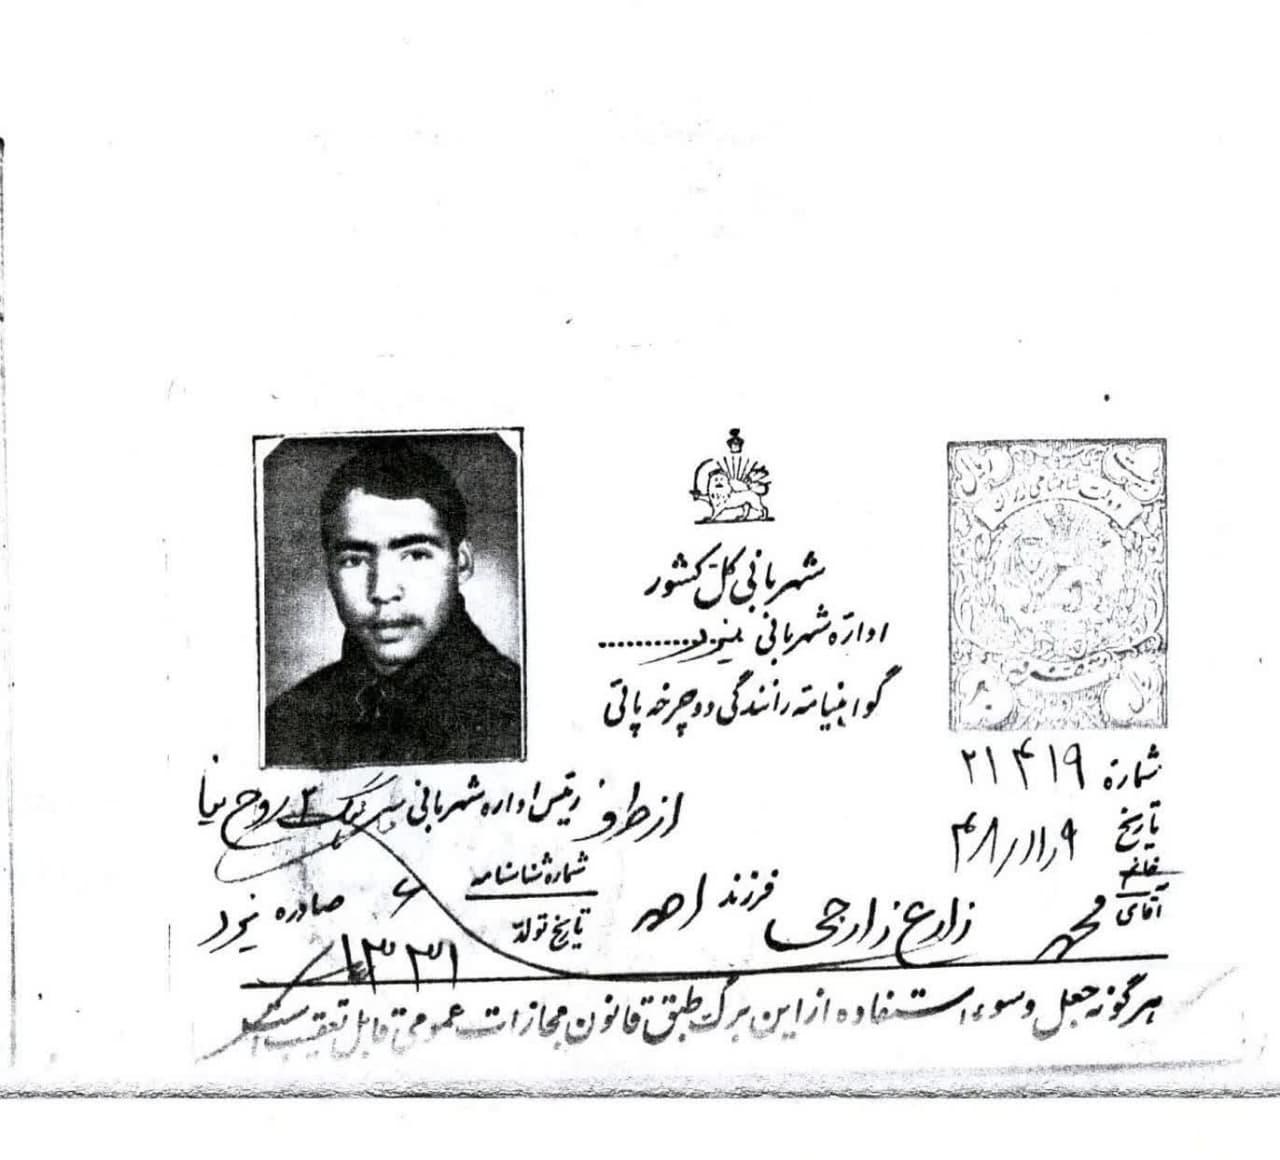 شهربانی کل کشور
اداره شهربانی یزد
گواهینامه رانندگی دوچرخه پائی
شماره ۲۱۴۱۹
تاریخ ۴۸/۱۱/۹
از طرف رئیس اداره شهربانی سرهنگ ۲ روح نیا
خانم
آقای محمد زارع زارچی فرزند احمد شماره شناسنامه ۶ صادره یزد
تاریخ تولد ۱۳۳۱
هرگونه جعل و سوء استفاده از این برگ طبق قانون مجازات عمومی قابل تعقیب است